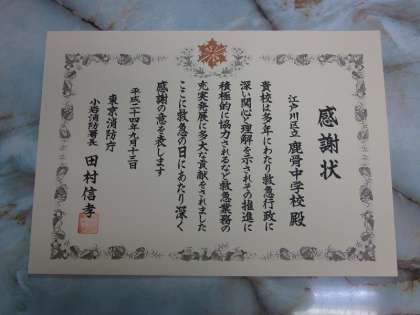 感謝状
江戸川区立 鹿骨中学校 殿
貴校は多年にわたり救急行政に
深い関心と理解を示されその推進に
積極的に協力されるなど救急業務の
充実発展に多大な貢献をされました
ここに救急の日にあたり深く
感謝の意を表します
平成二十四年九月十三日
東京消防庁
小岩消防署長 田村信孝